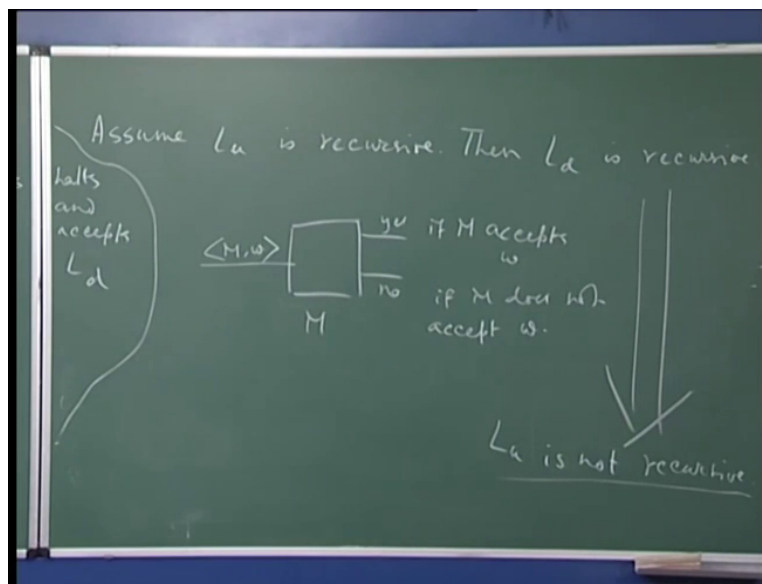 Assume Lu is recursive. Then Ld is recursive
halts
and
accepts
Ld
<M, w>
yes if M accepts
w
no if M does not
accept w.
M
Lu is not recursive